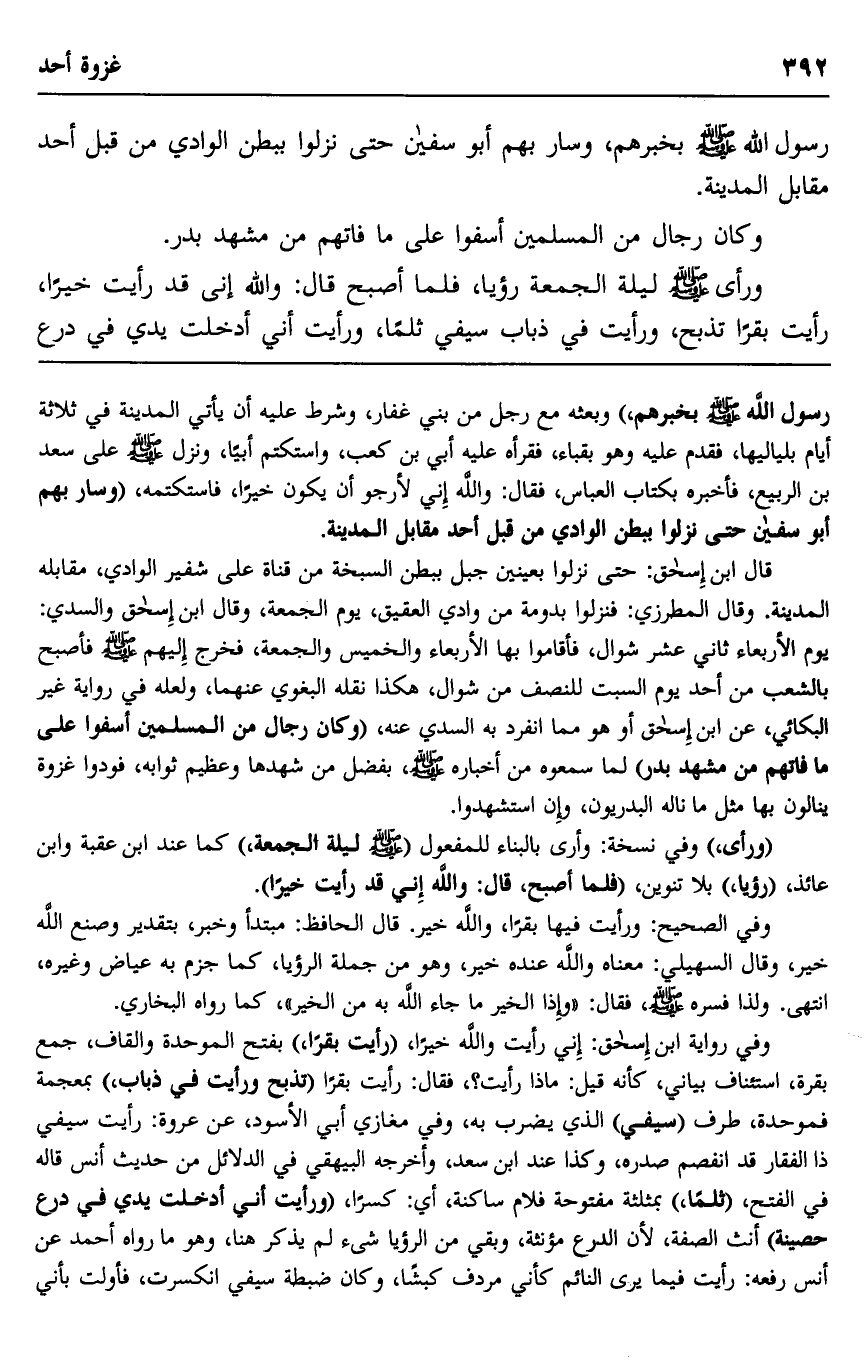 ٣٩٢ غزوة أحد
رسول الله ﷺ بخبرهم، وسار بهم أبو سفيٰن حتى نزلوا ببطن الوادي من قبل أحد
مقابل المدينة.
وكان رجال من المسلمين أسفوا على ما فاتهم من مشهد بدر.
ورأى ﷺ ليلة الجمعة رؤيا، فلما أصبح قال: والله إنى قد رأيت خيرًا،
رأيت بقرًا تذبح، ورأيت في ذباب سيفي ثلمًا، ورأيت أني أدخلت يدي في درع
رسول اللَّه ﷺ بخبرهم،) وبعثه مع رجل من بني غفار، وشرط عليه أن يأتي المدينة في ثلاثة
أيام بلياليها، فقدم عليه وهو بقباء، فقرأه عليه أبي بن كعب، واستكتم أبيًا، ونزل ﷺ على سعد
بن الربيع، فأخبره بكتاب العباس، فقال: واللَّه إني لأرجو أن يكون خيرًا، فاستكتمه، (وسار بهم
أبو سفيٰن حتى نزلوا ببطن الوادي من قبل أحد مقابل المدينة.
قال ابن إسحٰق: حتى نزلوا بعينين جبل ببطن السبخة من قناة على شفير الوادي، مقابله
المدينة. وقال المطرزي: فنزلوا بدومة من وادي العقيق، يوم الجمعة، وقال ابن إسحٰق والسدي:
يوم الأربعاء ثاني عشر شوال، فأقاموا بها الأربعاء والخميس والجمعة، فخرج إليهم ﷺ فأصبح
بالشعب من أحد يوم السبت للنصف من شوال، هكذا نقله البغوي عنهما، ولعله في رواية غير
البكائي، عن ابن إسحٰق أو هو مما انفرد به السدي عنه، (وكان رجال من المسلمين أسفوا على
ما فاتهم من مشهد بدر) لما سمعوه من أخباره ﷺ، بفضل من شهدها وعظيم ثوابه، فودوا غزوة
ينالون بها مثل ما ناله البدريون، وإن استشهدوا.
(ورأى،) وفي نسخة: وأرى بالبناء للمفعول (ﷺ ليلة الجمعة،) كما عند ابن عقبة وابن
عائذ، (رؤيا،) بلا تنوين، (فلما أصبح، قال: واللَّه إني قد رأيت خيرًا).
وفي الصحيح: ورأيت فيها بقرًا، واللَّه خير. قال الحافظ: مبتدأ وخبر، بتقدير وصنع اللَّه
خير، وقال السهيلي: معناه واللَّه عنده خير، وهو من جملة الرؤيا، كما جزم به عياض وغيره،
انتهى. ولذا فسره ﷺ، فقال: «وإذا الخير ما جاء اللَّه به من الخير»، كما رواه البخاري.
وفي رواية ابن إسحٰق: إني رأيت واللَّه خيرًا، (رأيت بقرًا،) بفتح الموحدة والقاف، جمع
بقرة، استئناف بياني، كأنه قيل: ماذا رأيت؟، فقال: رأيت بقرًا (تذبح ورأيت في ذباب،) بمعجمة
فموحدة، طرف (سيفي) الذي يضرب به، وفي مغازي أبي الأسود، عن عروة: رأيت سيفي
ذا الفقار قد انفصم صدره، وكذا عند ابن سعد، وأخرجه البيهقي في الدلائل من حديث أنس قاله
في الفتح، (ثلمًا،) بمثلثة مفتوحة فلام ساكنة، أي: كسرًا، (ورأيت أني أدخلت يدي في درع
حصينة) أنث الصفة، لأن الدرع مؤنثة، وبقي من الرؤيا شىء لم يذكر هنا، وهو ما رواه أحمد عن
أنس رفعه: رأيت فيما يرى النائم كأني مردف كبشًا، وكان ضبطة سيفي انكسرت، فأولت بأني